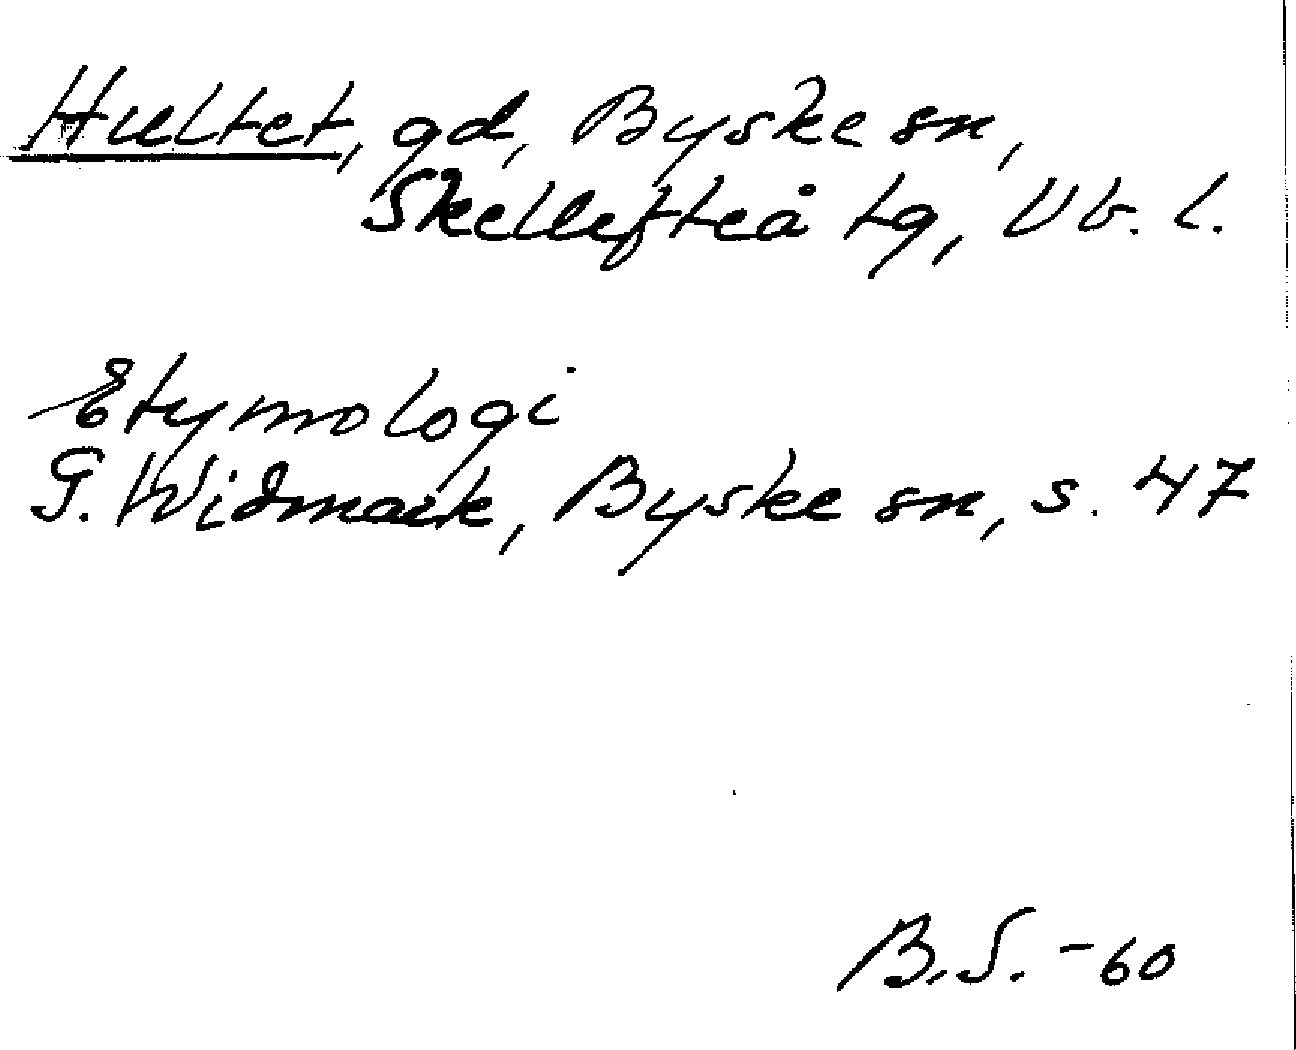 Hultet, gd, Byske sn,
Skellefteå tg, Vb. l.
Etymologi
G. Widmark, Byske sn, s. 47
B.S. -60